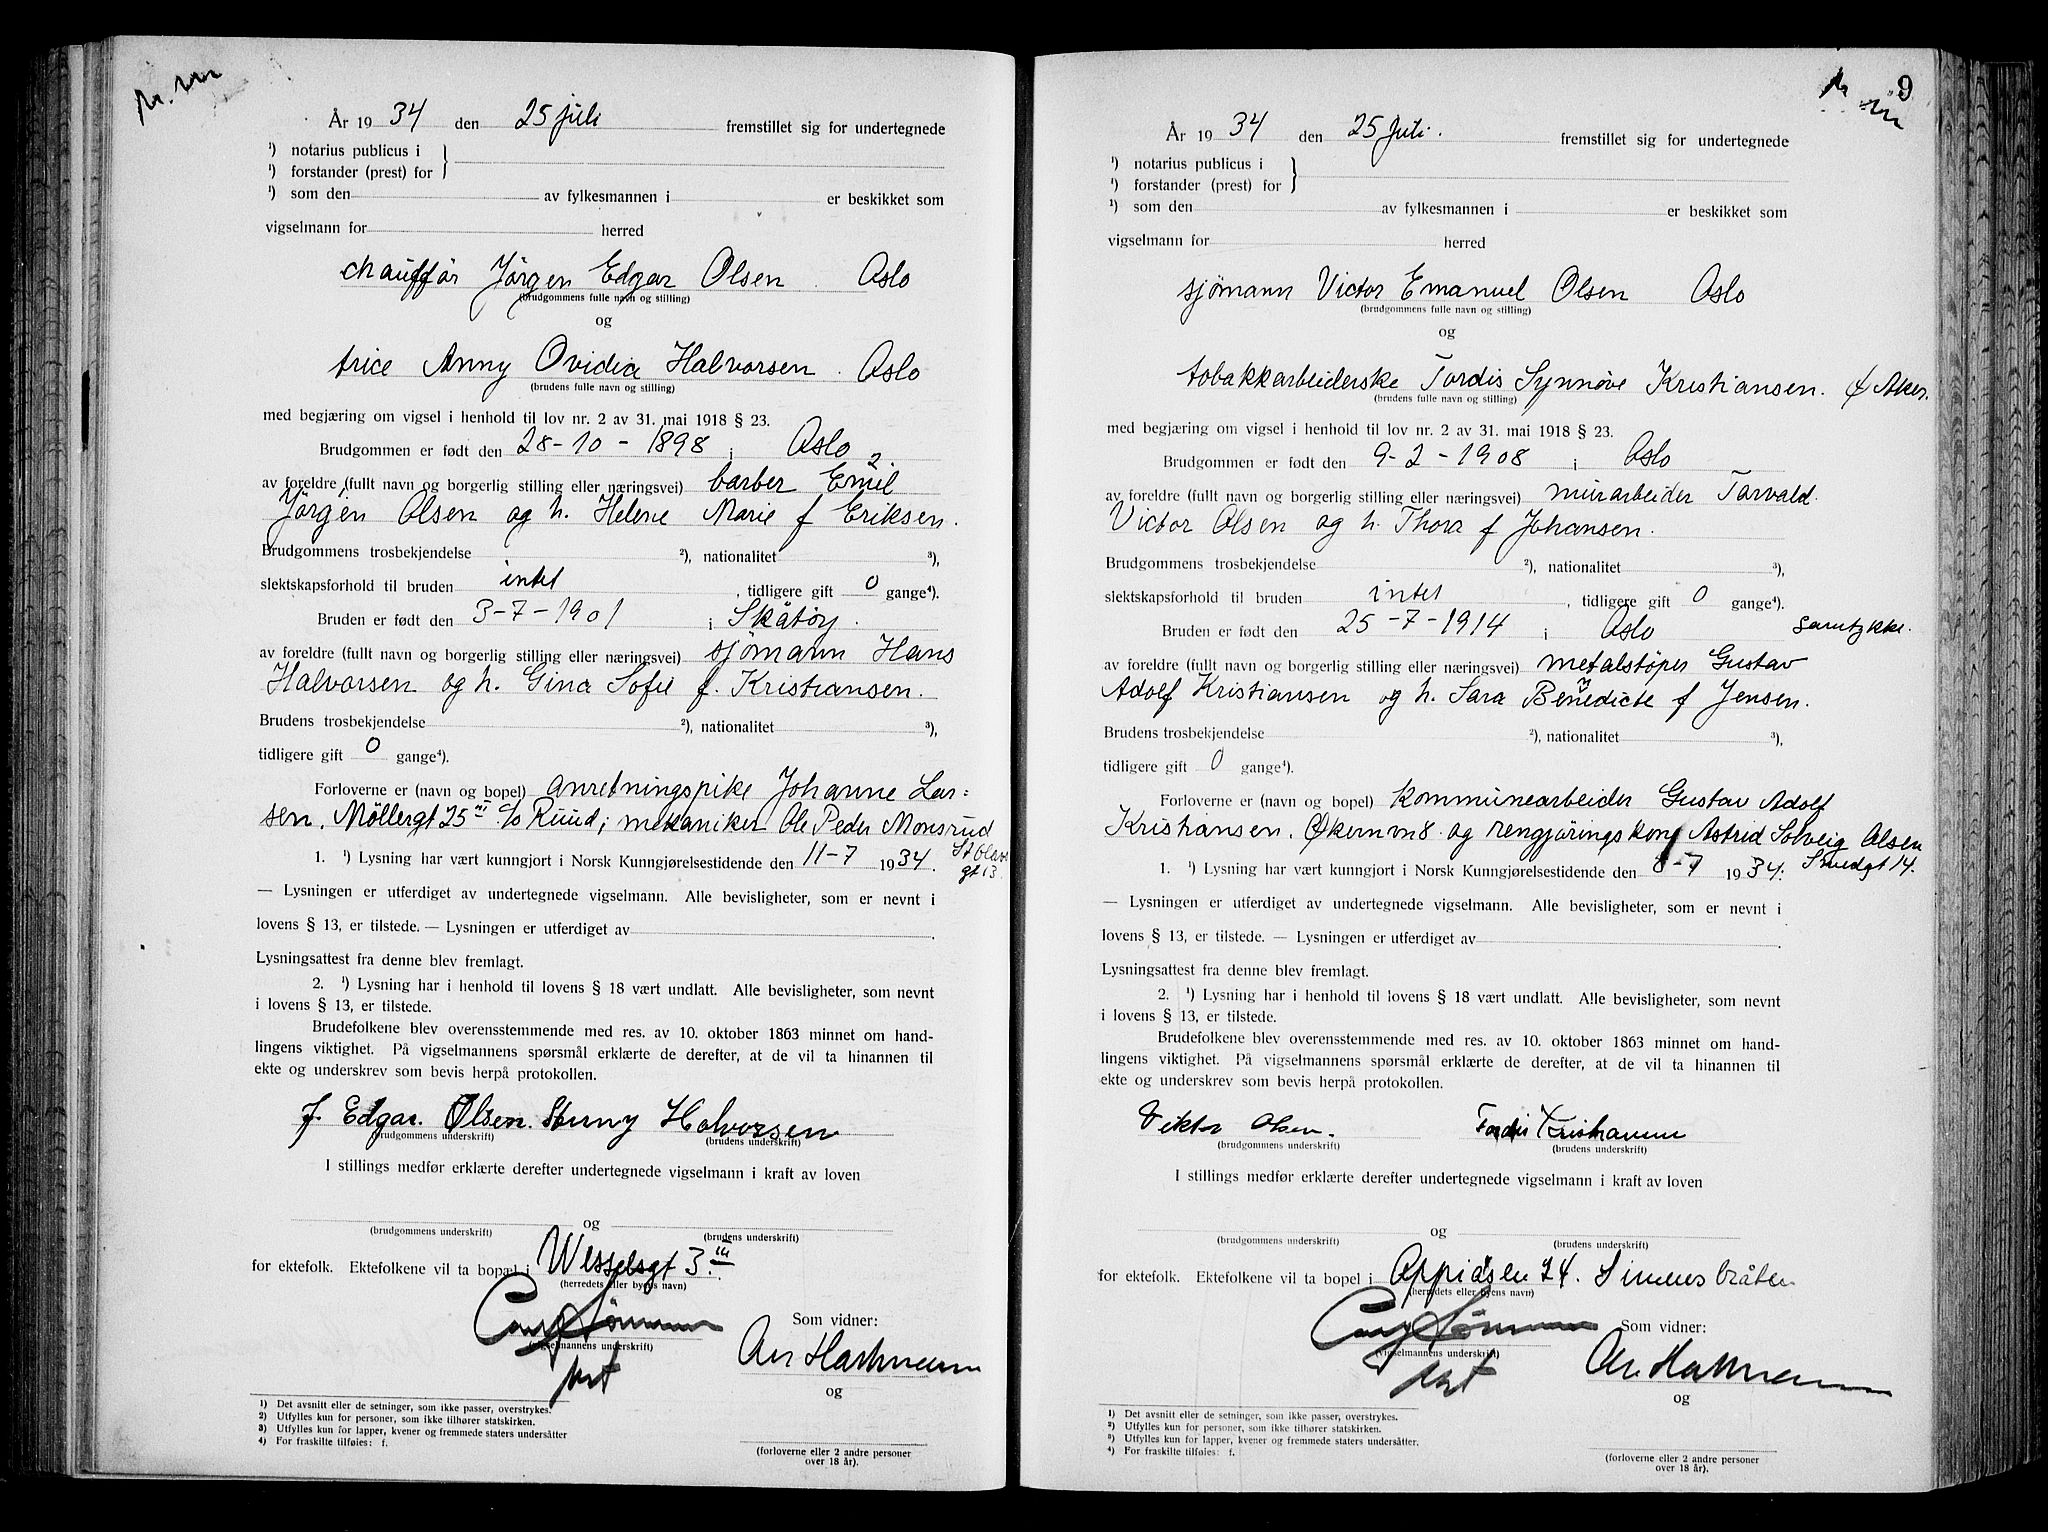 År 1934 den 25 juli fremstillet sig for undertegnede
¹) notarius publicus i
¹) forstander (prest) for
¹) som den av fylkesmannen i er beskikket som
vigselmann for herred
chauffør Jörgen Edgar Olsen. Oslo
(brudgommens fulle navn og stilling)
og
frice Anny Ovidia Halvorsen. Oslo
(brudens fulle navn og stilling)
med begjæring om vigsel i henhold til lov nr. 2 av 31. mai 1918 § 23.
Brudgommen er født den 28-10-1898 i Oslo
av foreldre (fullt navn og borgerlig stilling eller næringsvei) barber Emil
Jörgen Olsen og h. Helene Marie f Eriksen.
Brudgommens trosbekjendelse ²), nationalitet ³),
slektskapsforhold til bruden intet, tidligere gift 0 gange⁴).
Bruden er født den 3-7-1901 i Skåtøy.
av foreldre (fullt navn og borgerlig stilling eller næringsvei) sjømann Hans
Halvorsen og h. Gina Sofie f. Kristiansen.
Brudens trosbekjendelse ²), nationalitet ³),
tidligere gift 0 gange⁴).
Forloverne er (navn og bopel) anretningspike Johanne Lar=
sen, Möllergt 25 c/o Ruud; mekaniker Ole Peder Monsrud
St Olavs
gt 13.
1. ¹) Lysning har vært kunngjort i Norsk Kunngjørelsestidende den 11-7 1934.
— Lysningen er utferdiget av undertegnede vigselmann. Alle bevisligheter, som er nevnt i
lovens § 13, er tilstede. — Lysningen er utferdiget av
Lysningsattest fra denne blev fremlagt.
2. ¹) Lysning har i henhold til lovens § 18 vært undlatt. Alle bevisligheter, som nevnt
i lovens § 13, er tilstede.
Brudefolkene blev overensstemmende med res. av 10. oktober 1863 minnet om hand-
lingens viktighet. På vigselmannens spørsmål erklærte de derefter, at de vil ta hinannen til
ekte og underskrev som bevis herpå protokollen.
J. Edgar. Olsen. Anny Halvorsen
(brudgommens underskrift) (brudens underskrift)
I stillings medfør erklærte derefter undertegnede vigselmann i kraft av loven
og
(brudgommens underskrift) (brudens underskrift)
for ektefolk. Ektefolkene vil ta bopæl i Wesselsgt 3.
(herredets eller byens navn)
Som vidner:
(vigselmannens underskrift)
og
1) Det avsnitt eller de setninger, som ikke passer, overstrykes.
2) Utfylles kun for personer, som ikke tilhører statskirken.
3) Utfylles kun for lapper, kvener og fremmede staters undersåtter
4) For fraskilte tilføies: f.
(forloverne eller 2 andre personer
over 18 år).
9
År 1934 den 25 Juli. fremstillet sig for undertegnede
¹) notarius publicus i
¹) forstander (prest) for
¹) som den av fylkesmannen i er beskikket som
vigselmann for herred
sjømann Victor Emanuel Olsen Oslo
(brudgommens fulle navn og stilling)
og
tobakkarbeiderske Tordis Synnøve Kristiansen. Ø Aker.
(brudens fulle navn og stilling)
med begjæring om vigsel i henhold til lov nr. 2 av 31. mai 1918 § 23.
Brudgommen er født den 9-2-1908 i Oslo
av foreldre (fullt navn og borgerlig stilling eller næringsvei) murarbeider Torvald
Victor Olsen og h. Thora f Johansen.
Brudgommens trosbekjendelse ²), nationalitet ³),
slektskapsforhold til bruden intet, tidligere gift 0 gange⁴).
Bruden er født den 25-7-1914 i Oslo samtykke.
av foreldre (fullt navn og borgerlig stilling eller næringsvei) metalstøper Gustav
Adolf Kristiansen og h. Sara Benedicte f Jensen.
Brudens trosbekjendelse ²), nationalitet ³),
tidligere gift 0 gange⁴).
Forloverne er (navn og bopel) kommunearbeider Gustav Adolf
Kristiansen. Økernvn 8. og rengjøringskone Astrid Solveig Olsen
Smedgt 14.
1. ¹) Lysning har vært kunngjort i Norsk Kunngjørelsestidende den 8-7 1934.
— Lysningen er utferdiget av undertegnede vigselmann. Alle bevisligheter, som er nevnt i
lovens § 13, er tilstede. — Lysningen er utferdiget av
Lysningsattest fra denne blev fremlagt.
2. ¹) Lysning har i henhold til lovens § 18 vært undlatt. Alle bevisligheter, som nevnt
i lovens § 13, er tilstede.
Brudefolkene blev overensstemmende med res. av 10. oktober 1863 minnet om hand-
lingens viktighet. På vigselmannens spørsmål erklærte de derefter, at de vil ta hinannen til
ekte og underskrev som bevis herpå protokollen.
Viktor Olsen. Tordis Kristiansen
(brudgommens underskrift) (brudens underskrift)
I stillings medfør erklærte derefter undertegnede vigselmann i kraft av loven
og
(brudgommens underskrift) (brudens underskrift)
for ektefolk. Ektefolkene vil ta bopel i 24. Simensbråten
(herredets eller byens navn)
Som vidner:
(vigselmannens underskrift)
og
1) Det avsnitt eller de setninger, som ikke passer, overstrykes.
2) Utfylles kun for personer, som ikke tilhører statskirken.
3) Utfylles kun for lapper, kvener og fremmede staters undersåtter.
4) For fraskilte tilføies: f.
(forloverne eller 2 andre personer
over 18 år).